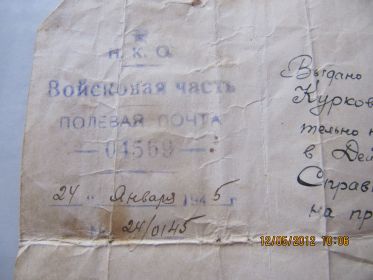 Н. К. О.
Войсковая часть
ПОЛЕВАЯ ПОЧТА
— 04569 —
24 " Января 1945 г
24/0145
Выдано
Курков
тельно н
в Дей
Справ
на пр
12/05/2012 10:06